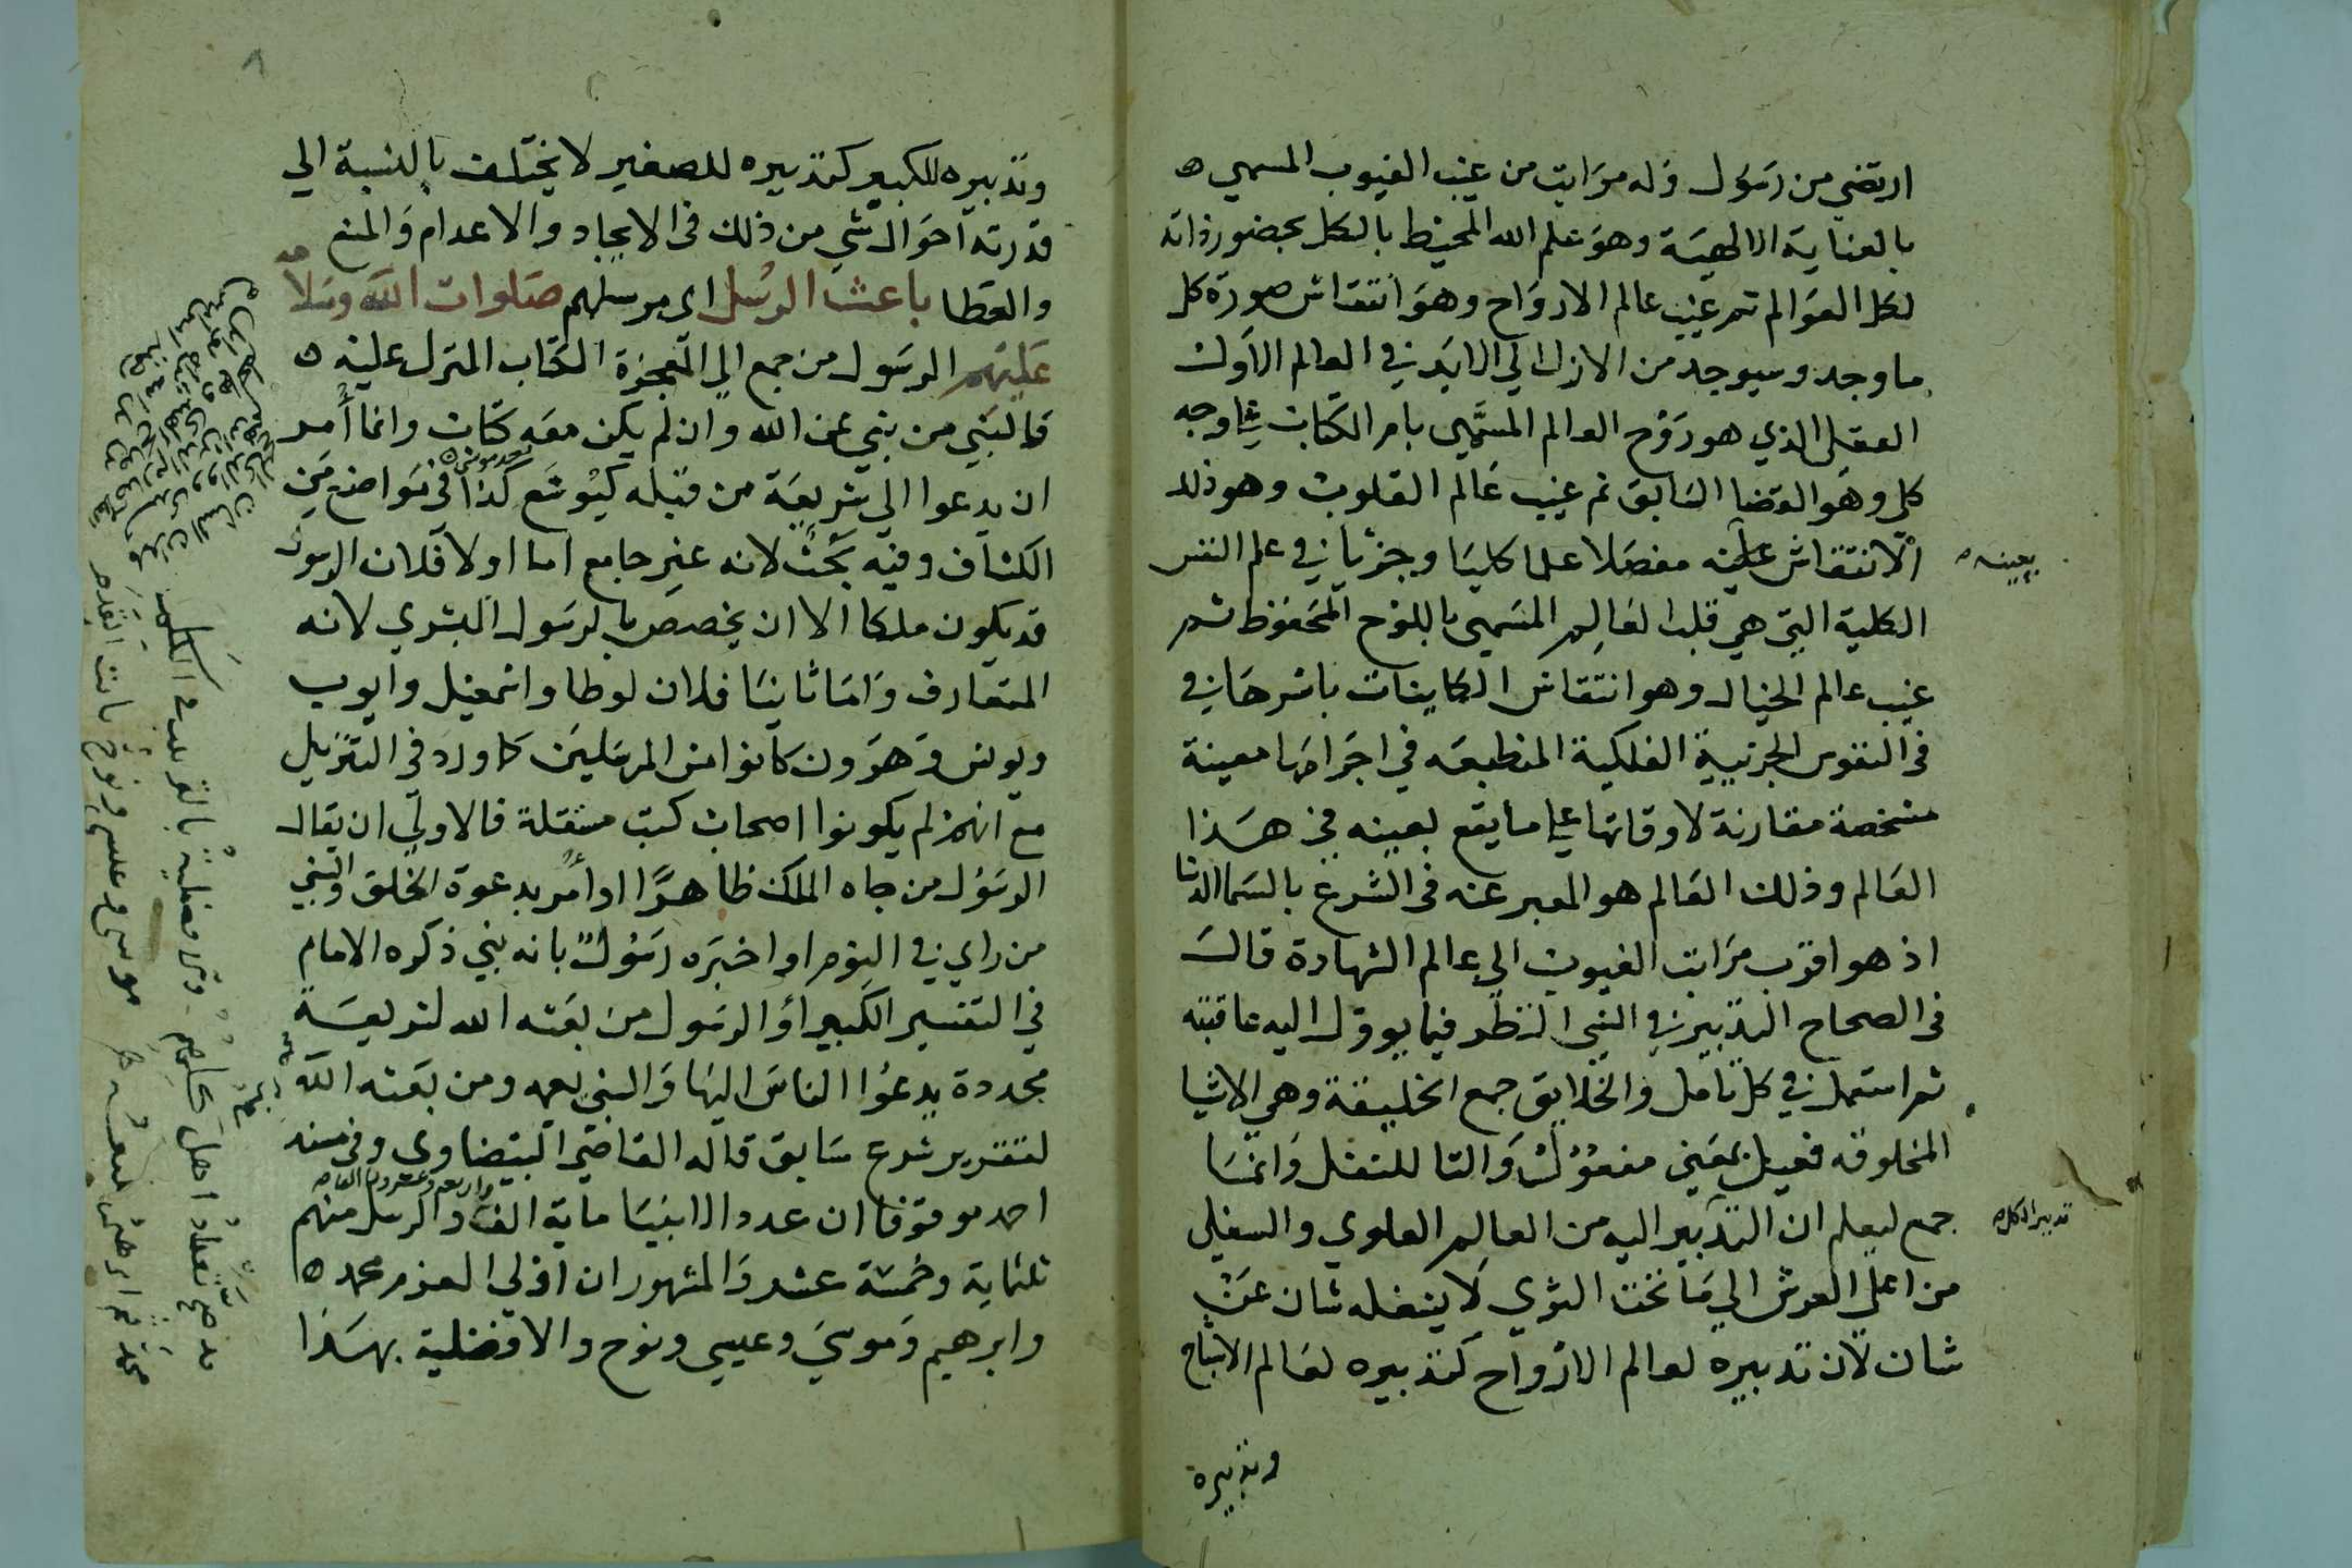 ارتضي من رسول وله مراتب من غيب الغيوب المسمي
بالعناية الالهية وهو علم الله المحيط بالكل بحضور ذاته
لكل العوالم ثم غيب عالم الارواح وهو انتقاش صورة كل
ما وجد وسيوجد من الازل الي الابد في العالم الاول
العقلي الذي هو روح العالم المسمي بام الكتاب علي وجه
كلي وهو القضا السابق ثم غيب عالم القلوب وهو ذلك
الانتقاش عليه مفصلا علما كليا وجزئيا في علم النفس
بعينه
الكلية التي هي قلب العالم المسمي باللوح المحفوظ ثم
غيب عالم الخيال وهو انتقاش الكاينات باسرها في
في النفوس الجزئية الفلكية المنطبعه في اجرامها معينة
مشخصة مقارنة لاوقاتها علي ما يقع بعينه في هذا
العالم وذلك العالم هو المعبر عنه في الشرع بالسما الدنيا
اذ هو اقرب مراتب الغيوب الي عالم الشهادة قال
في الصحاح التدبير في الشي النظر فيما يوول اليه عاقبته
ثم استعمل في كل تامل والخلايق جمع الخليقة وهي الاشيا
المخلوقه فعيل بمعني مفعول والتا للنقل وانما
جمع ليعلم ان التدبير اليه من العالم العلوي والسفلي
تدبير الكل
من اعلي العرش الي ما تحت الثري لا يشغله شان عن
شان لان تدبيره لعالم الارواح كتدبيره لعالم الاشباح
وتدبيره
وتدبيره للكبير كتدبيره للصغير لا يختلف بالنسبة الي
قدرته احوال شي من ذلك في الايجاد والاعدام والمنع
والعطا باعث الرسل اي مرسلهم صلوات الله وسلامه
عليهم الرسول من جمع الي المعجزة الكتاب المنزل عليه
فالنبي من ينبي عن الله وان لم يكن معه كتاب وانما أمر
ان يدعوا الي شريعة من قبله كيوشع كذا في مواضع من
الكشاف وفيه بحث لانه غير جامع اما اولا فلان الرسول
قد يكون ملكا الا ان يخصص بالرسول البشري لانه
المتعارف واما ثانيا فلان لوطا واسمعيل وايوب
ويونس وهرون كانوا من المرسلين كما ورد في التنزيل
مع انهم لم يكونوا اصحاب كتب مستقلة فالاولي ان يقال
الرسول من جاه الملك ظاهرا او أمر بدعوة الخلق والنبي
من راي في النوم او اخبره رسول بانه نبي ذكره الامام
في التفسير الكبير او الرسول من بعثه الله لشريعة
مجددة يدعوا الناس اليها والنبي يعمه ومن بعثه الله
لتقرير شرع سابق قاله القاضي البيضاوي وفي مسند
احمد موقوفا ان عدد الانبيا ماية الف والرسل منهم
واربعه وعشرون الفا
ثلثماية وخمسة عشر والمشهور ان اولي العزم محمد
وابرهيم وموسي وعيسي ونوح والافضلية بهذا